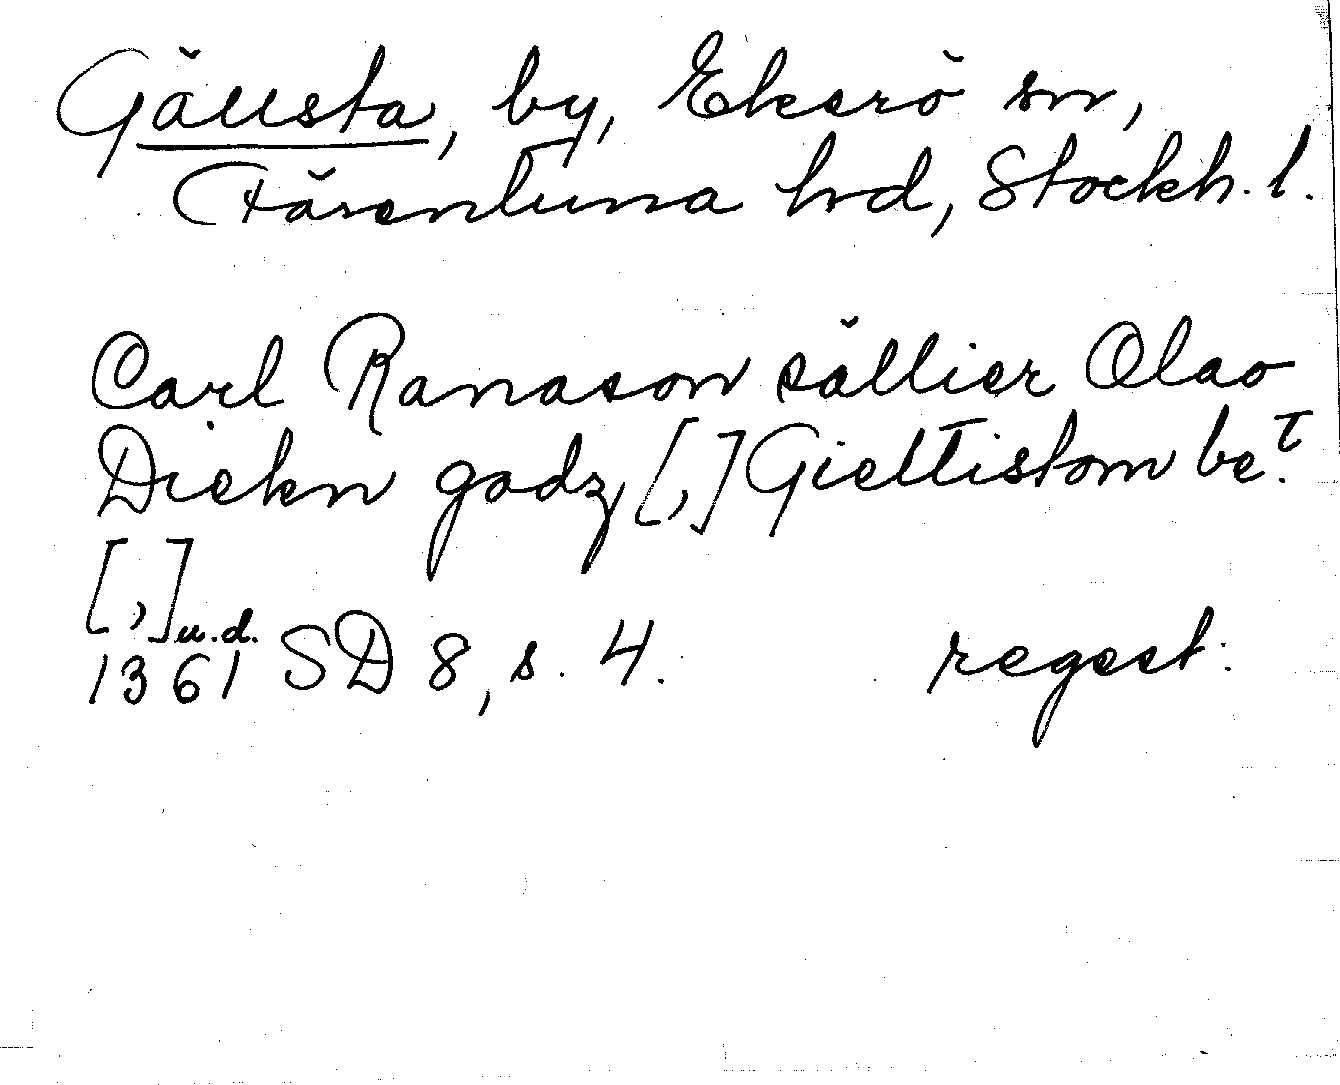 Gällsta, by, Ekerö sn,
Färentuna hd, Stockh. l.
Carl Ranason sällier Olao
Diekn godz [,] Gieltistom be.t
[,] u.d.
1361 SD 8, s. 4. regest.